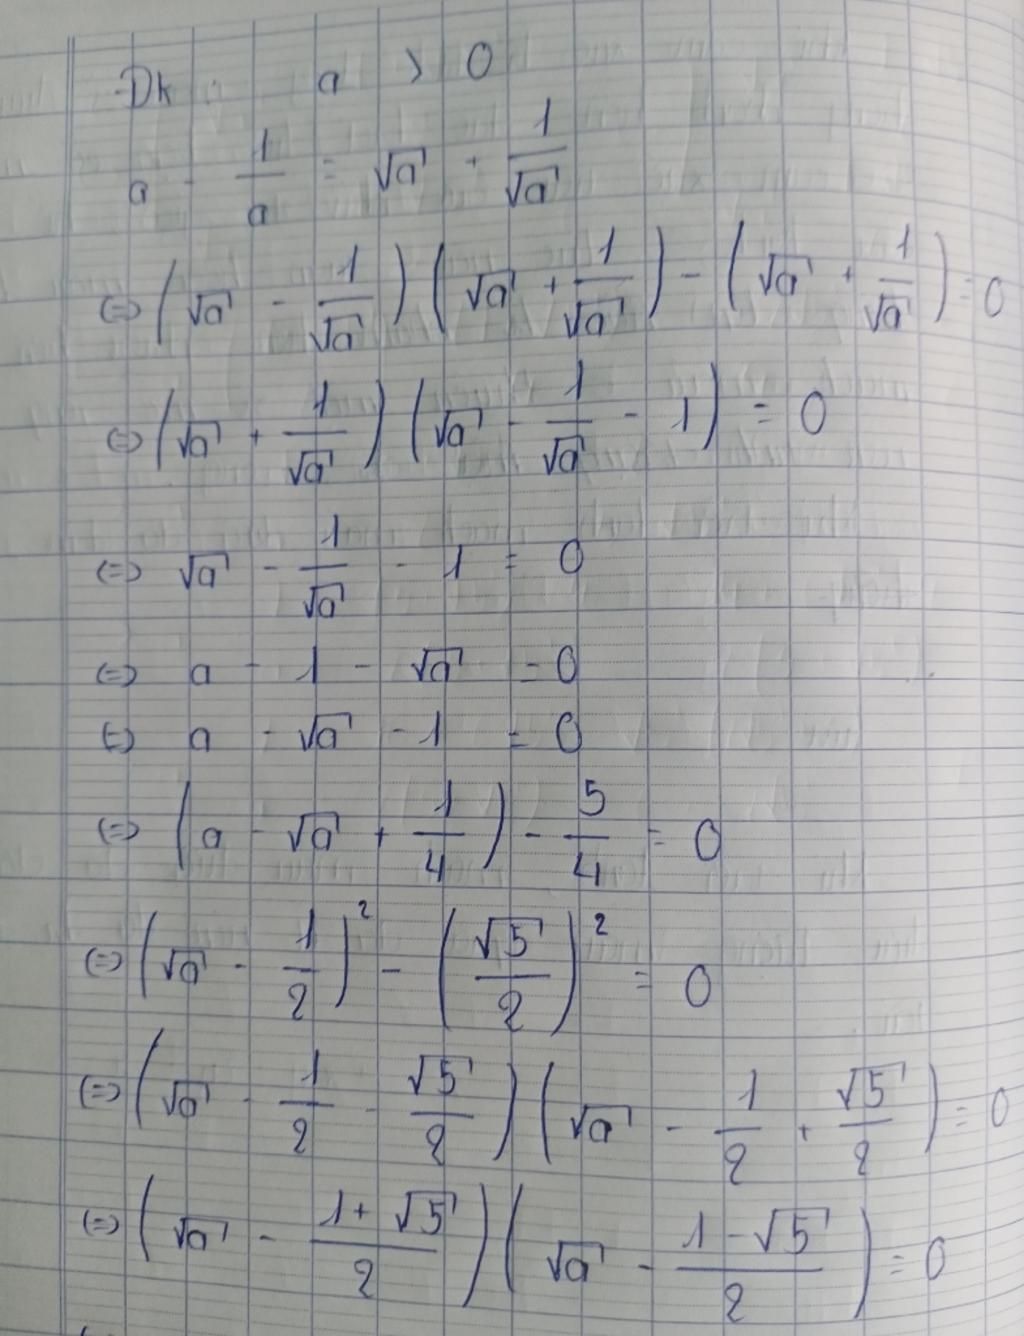 Đk : a > 0
a - 1/a = √a + 1/√a
(=) (√a - 1/√a) (√a + 1/√a) - (√a + 1/√a) = 0
(=) (√a + 1/√a) (√a - 1/√a - 1) = 0
(=) √a - 1/√a - 1 = 0
(=) a - 1 - √a = 0
(=) a - √a - 1 = 0
(=) (a - √a + 1/4) - 5/4 = 0
(=) (√a - 1/2)² - (√5/2)² = 0
(=) (√a - 1/2 - √5/2) (√a - 1/2 + √5/2) = 0
(=) (√a - (1+√5)/2) (√a - (1-√5)/2) = 0